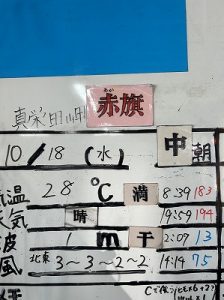 真栄田岬
あか
赤旗
10/18(水)
中
朝
温 28℃ 満 8:39 183
天気 晴 19:59 194
波 1m 干 2:09 13
風 北東 3〜3-2-2 14:14 75